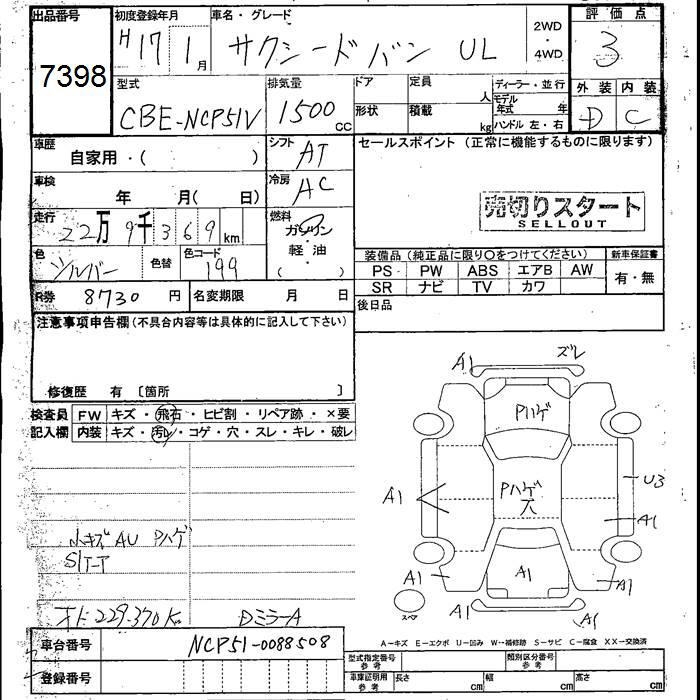 出品番号 初度登録年月 車名・グレード 2WD・4WD 評価点
7398 H17 1月 サクシードバン UL 3
型式 排気量 ドア 定員 人 ディーラー・並行 外装 内装
CBE-NCP51V 1500 cc 形状 積載 kg モデル年式 年 ハンドル 左・右 D C
車歴 自家用・( ) シフト AT セールスポイント (正常に機能するものに限ります)
車検 年 月( 日) 冷房 AC
売切りスタート
SELLOUT
走行 22万9千369km 燃料 ガソリン 軽・油 ( ・ )
色 シルバー 色替 色コード 199
装備品(純正品に限り○をつけてください) 新車保証書
PS PW ABS エアB AW 有・無
SR ナビ TV カワ
R券 8730円 名変期限 月 日 後日品
注意事項申告欄(不具合内容等は具体的に記入して下さい)
修復歴 有 [箇所 ]
検査員 FW キズ・飛石・ヒビ割・リペア跡・×要
記入欄 内装 キズ・汚レ・コゲ・穴・スレ・キレ・破レ
小キズ AU Pハゲ
229.370K DミラーA
車台番号 NCP51-0088508
登録番号
A1 ズレ
Pハゲ
A1 Pハゲ 穴 U3
A1
A1 A1 A1
スペア A1 A1
A-キズ E-エクボ U-凹み W-補修跡 S-サビ C-腐食 XX-交換済
型式指定番号 参考 類別区分番号 参考
車庫証明用 参考 長さ cm 幅 cm 高さ cm